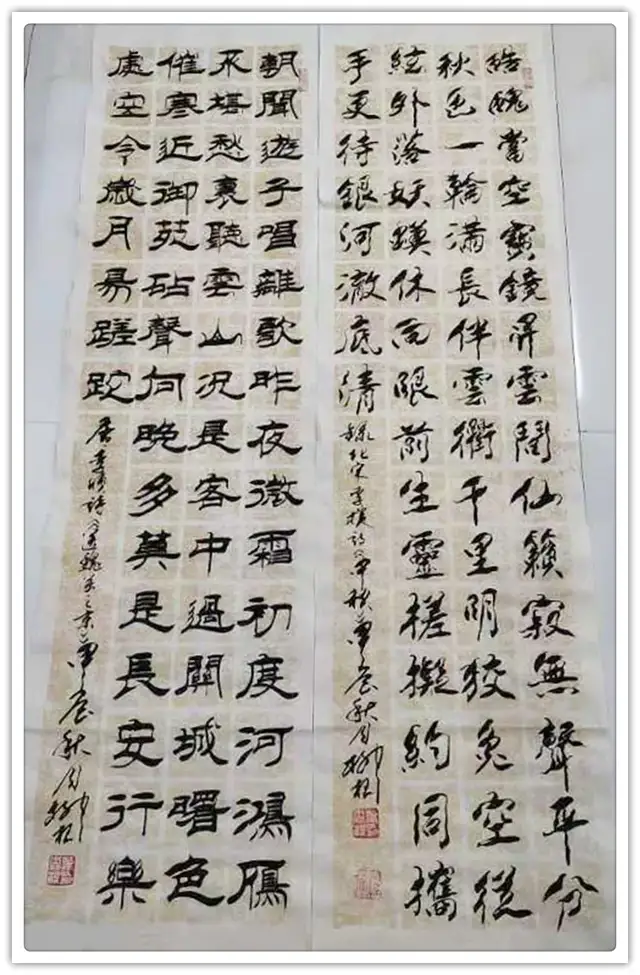 皓魄當空寶鏡昇雲間仙籟寂無聲平分
秋色一輪滿長伴雲衢千里明狡兔空從
絃外落妖蟆休向眼前生靈槎擬約同攜
手更待銀河澈底清
錄北宋李樸詩中秋
朝聞遊子唱離歌昨夜微霜初度河鴻雁
不堪愁裏聽雲山況是客中過關城曙色
催寒近御苑砧聲向晚多莫是長安行樂
處空令歲月易蹉跎
唐李頎詩送魏萬之京